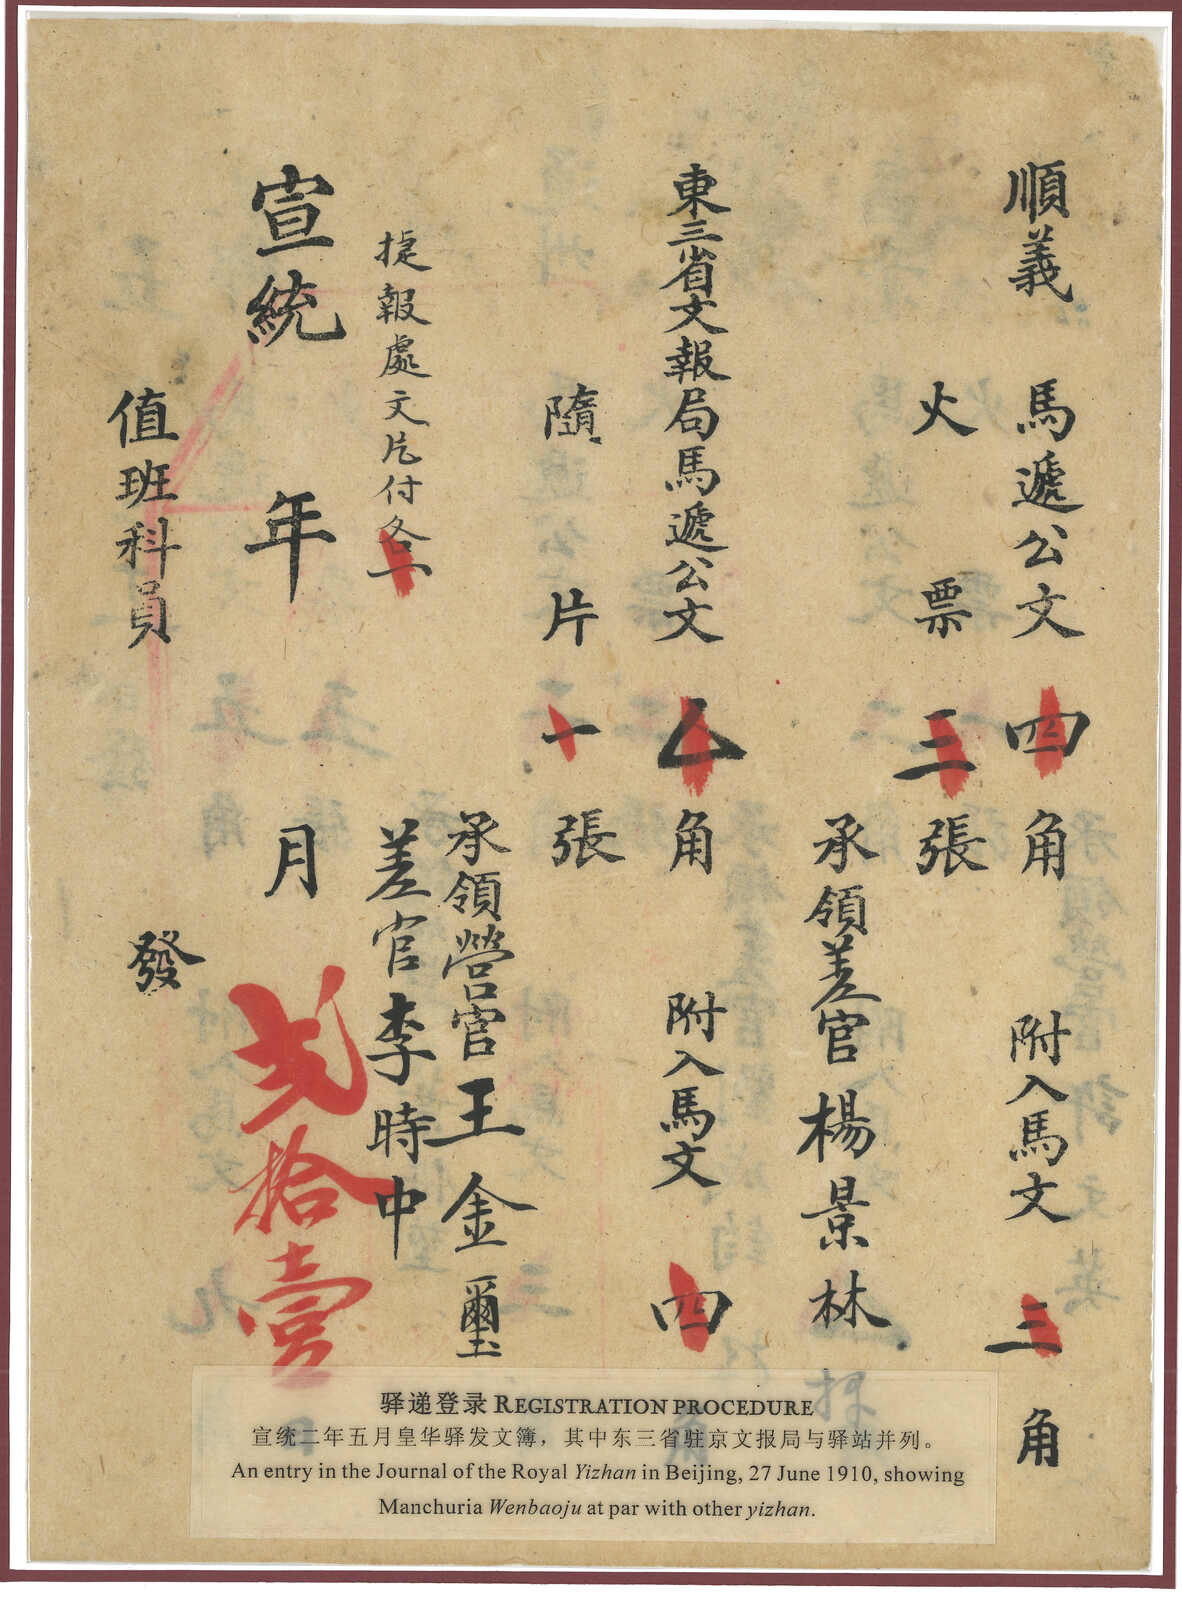 順義 馬遞公文 四 角 附入馬文 三 角
火 票 三 張
承領差官楊景林
東三省文報局馬遞公文 乙 角 附入馬文 四
隨 片 一 張
承領營官王金璽
差官李時中
捷報處文片付各一
宣統 年 月 貳拾壹
值班科員 發
驿递登录 REGISTRATION PROCEDURE
宣统二年五月皇华驿发文簿，其中东三省驻京文报局与驿站并列。
An entry in the Journal of the Royal Yizhan in Beijing, 27 June 1910, showing
Manchuria Wenbaoju at par with other yizhan.